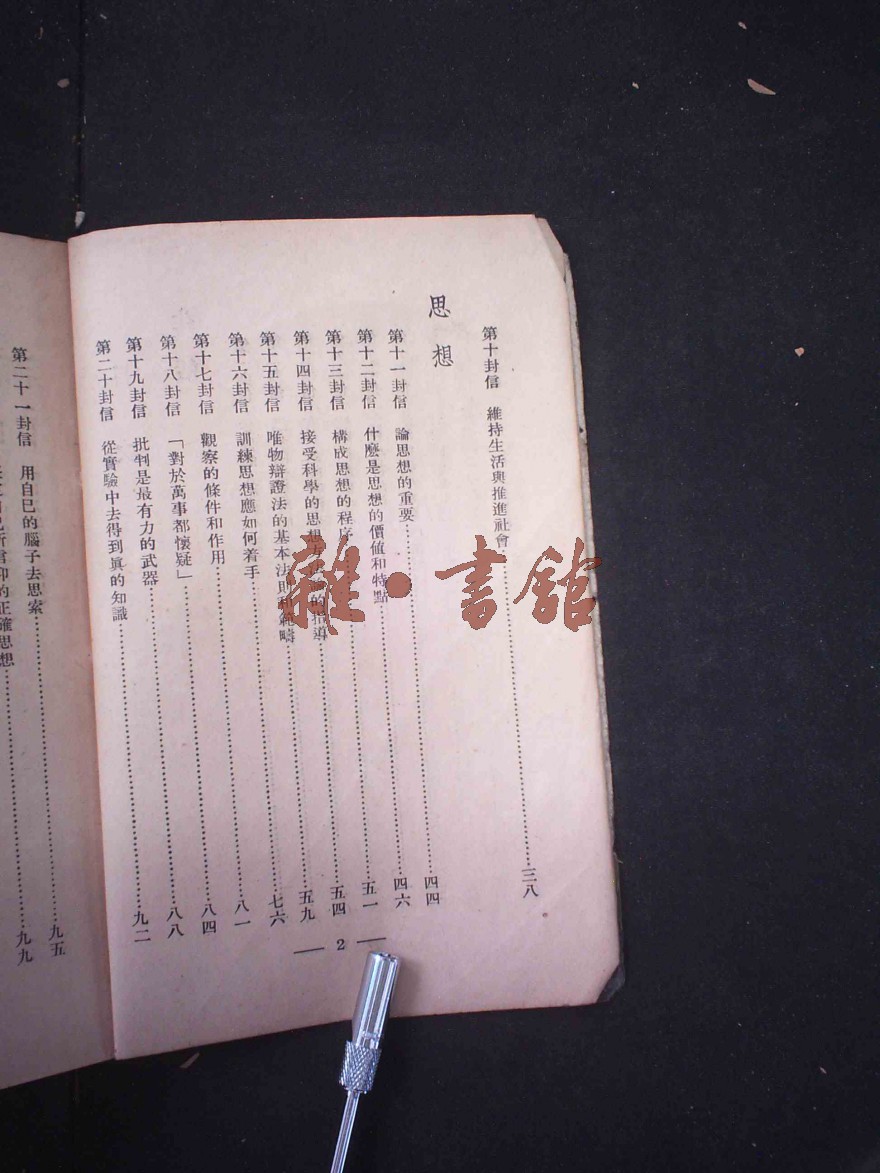 第十封信 維持生活與推進社會…三八
思想
第十一封信 論思想的重要…四四
第十二封信 什麼是思想的價值和特點…四六
第十三封信 構成思想的程序…五一
第十四封信 接受科學的思想方法論的指導…五四
第十五封信 唯物辯證法的基本法則和範疇…五九
第十六封信 訓練思想應如何着手…七六
第十七封信 觀察的條件和作用…八一
第十八封信 「對於萬事都懷疑」…八四
第十九封信 批判是最有力的武器…八八
第二十封信 從實驗中去得到眞的知識…九二
— 2 —
第二十一封信 用自己的腦子去思索…九五
所信仰的正確思想…九九
雜·書館